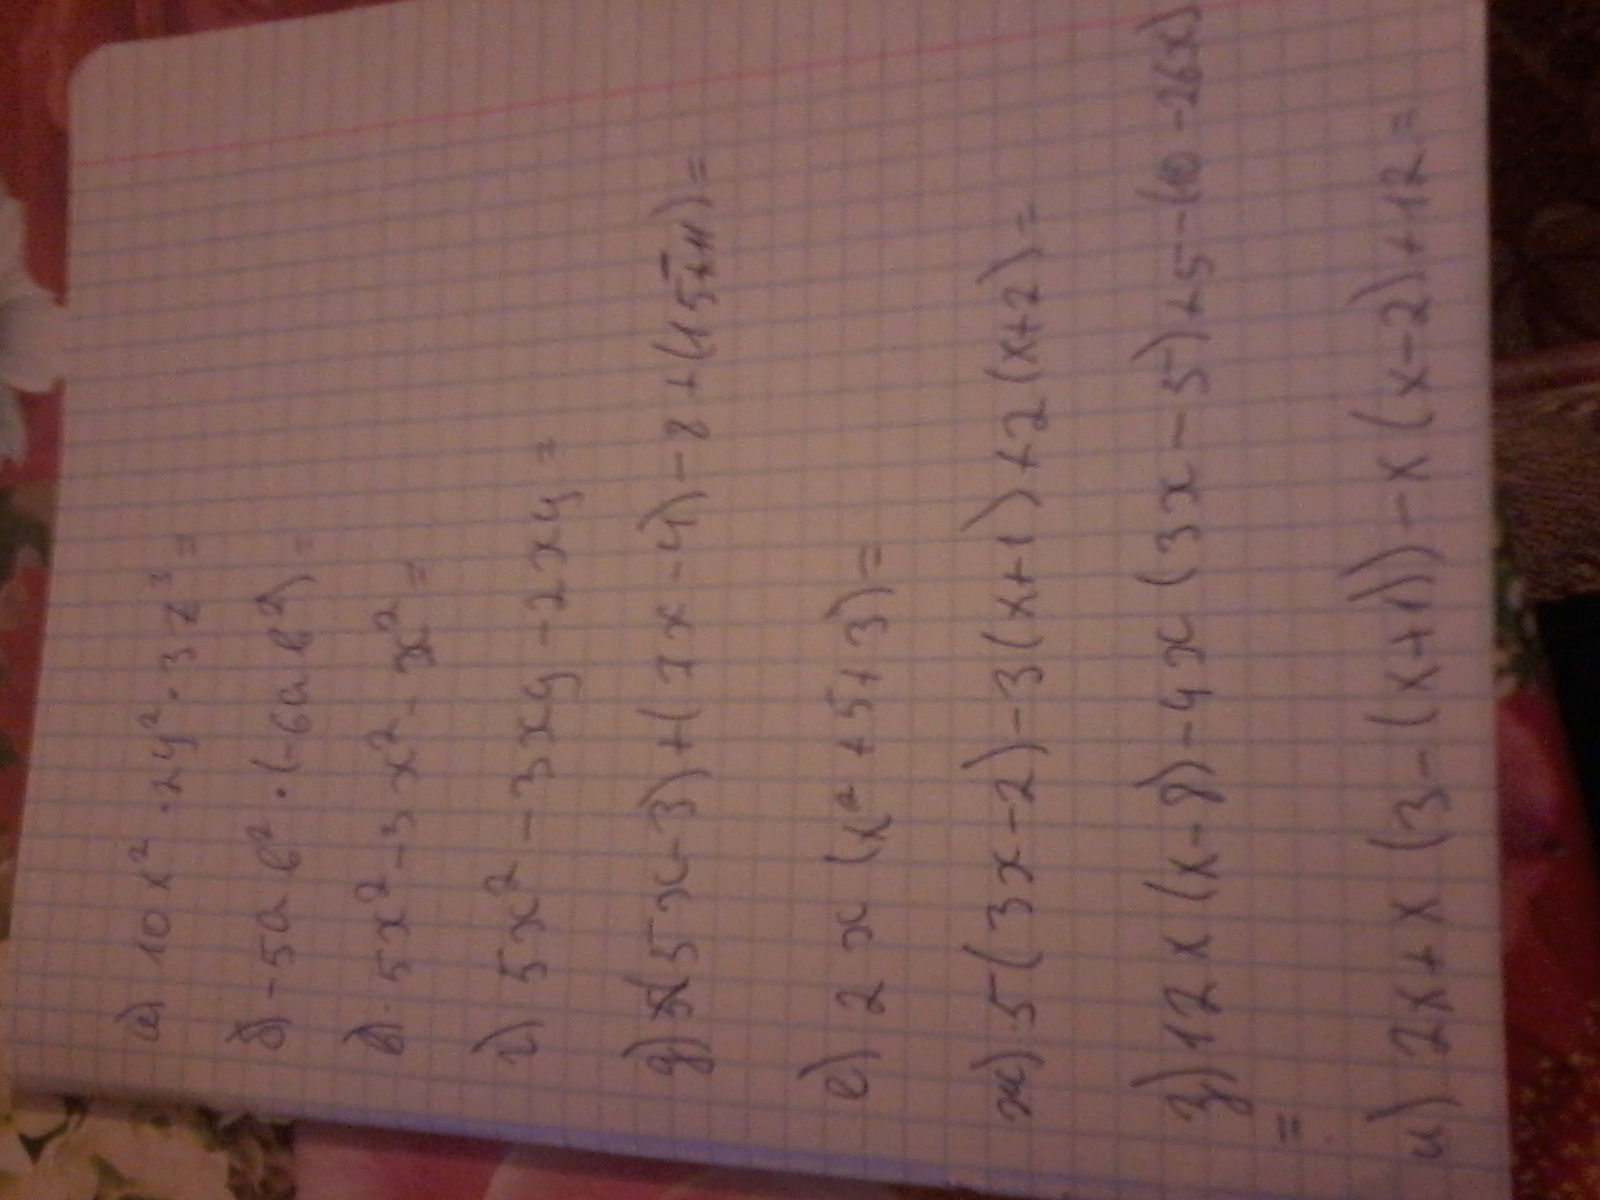 а) 10x² · 2y² · 3z³ =
б) -5ab² · (-6ab²) =
в) 5x² - 3x² - x² =
г) 5x² - 3xy - 2xy =
д) (5x-3) + (7x-4) - 8 + (15 =
е) 2x (x² + 5 + 3) =
ж) 5(3x-2) - 3(x+1) + 2(x+2) =
з) 12x(x-8) - 4x(3x-5) + 5 - (10-26x)
=
и) 2x + x(3-(x+1)) - x(x-2) + 12 =